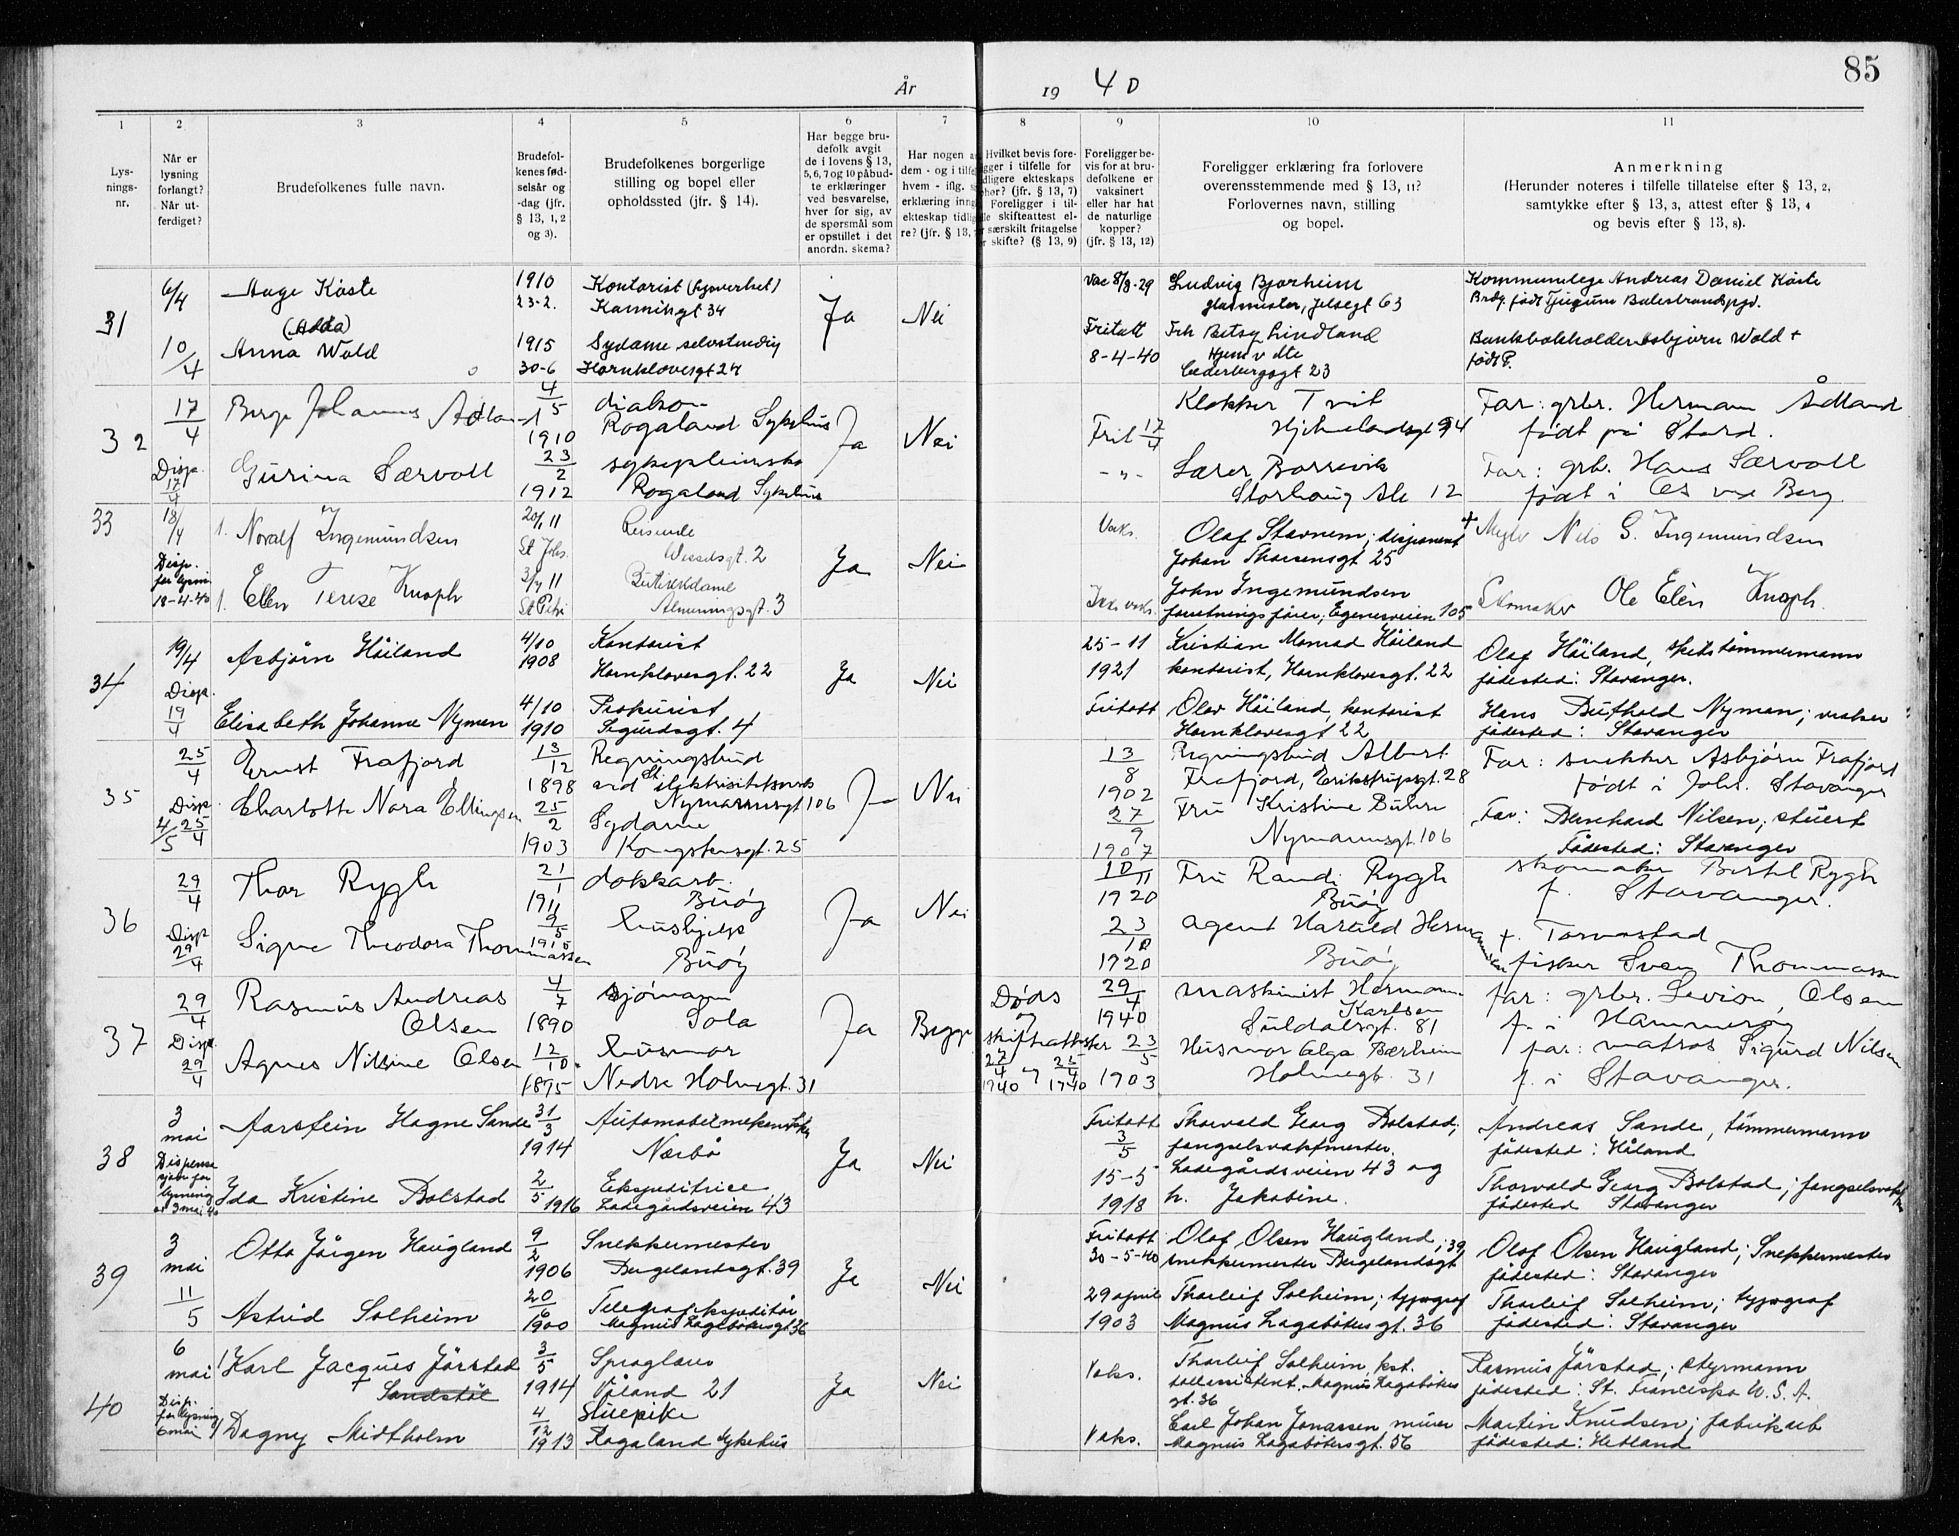 85
År 19 40
1 2 3 4 5 6 7 8 9 10 11
Lys-
nings-
nr.
Når er
lysning
forlangt?
Når ut-
ferdiget?
Brudefolkenes fulle navn.
Brudefol-
kenes fød-
selsår og
-dag (jfr.
§ 13, 1, 2
og 3).
Brudefolkenes borgerlige
stilling og bopel eller
opholdssted (jfr. § 14).
Har begge bru-
defolk avgit
de i lovens § 13,
5, 6, 7 og 10 påbud-
te erklæringer
ved besvarelse,
hver for sig, av
de spørsmål som
er opstillet i det
anordn. skema?
Har nogen a
dem - og i tilfe
hvem - iflg.
erklæring inng
ekteskap tidlig
re? (jfr. § 13,
Hvilket bevis fore-
ligger i tilfelle for
tidligere ekteskaps
ophør? (jfr. § 13, 7)
Foreligger i til-
skifteattest el-
særskilt fritagelse
skifte? (§ 13, 9)
Foreligger be-
vis for at bru-
defolkene er
vaksinert
eller har hat
de naturlige
kopper?
(jfr. § 13, 12)
Foreligger erklæring fra forlovere
overensstemmende med § 13, 11?
Forlovernes navn, stilling
og bopel.
Anmerkning
(Herunder noteres i tilfelle tillatelse efter § 13, 2,
samtykke efter § 13, 3, attest efter § 13, 4
og bevis efter § 13, 8).
31
6/4
Aage Kåste
1910
23-2.
Kontorist
34
Ja
Nei
Vac 8/8-29
Ludvig Bjorheim
glasmester, Jelsegt 63
Kommunelege Andreas Daniel Kåste
født Tjugum
10/4
(Adda)
Anna Wold
1915
30-6
Sydame selvstendig
Hornklovesgt 27
Fritatt
8-4-40
Frk Betsy Lindland
Cederbergsgt 23
Bankbokholder Asbjørn Wold +
født
32
17/4
Johannes Ådland
4/5
1910
diakon
Rogaland Sykehus
Ja
Nei
Frit 17/4
Klokker Tveit
Hjelmelandsgt 94
Far: grbr. Hermann Ådland
født på Stord.
Disp.
17/4
Gurina Særvoll
23/2
1912
sykepleierske
Rogaland Sykehus
-"-
Lærer Borrevik
Storhaug Ale 12
Far: grb. Hans Særvoll
født i Os ved Berg.
33
18/4
1. Noralf Ingemundsen
20/1 11
St Johs.
Reisende
Wesselsgt. 2
Ja
Nei
Vaks.
Olaf Stavnem; disponent
Johan Thorsensgt 25
+ Nils G. Ingemundsen
Disp.
for lysning
18-4-40
1. Ellen Terese Knoph
3/7 11
St Petri
Butikkdame
Almenningsgt. 3
Ikke vaks.
John Ingemundsen
forretningsfører, Egenesveien 105
Skomaker Ole Elin Knoph.
34
19/4
Asbjørn Håiland
4/10
1908
Kontorist
Hornklovesgt. 22
Ja
Nei
25-11
1921
Kristian Monrad Håiland
kontorist, Hornklovesgt. 22
Olaf Håiland, skibstømmermann
fødested: Stavanger.
Disp.
19/4
Elisabeth Johanne Nyman
4/10
1910
Prokurist
Sigurdsgt. 4
Fritatt
Olav Håiland, kontorist
Hornklovesgt 22
Hans Buthold Nyman; vraker
fødested: Stavanger
35
25/4
Ernst Frafjord
13/12
1898
Regningsbud
ved St. elektrisitetsverk
Nymannsgt 106
Ja
Nei
13/8
1902
Regningsbud Albert
Frafjord, Erikstrupsgt. 28
Far: snekker Asbjørn Frafjord
født i Joh. Stavanger
Disp
4/5 25/4
Charlotte Nora Ellingsen
25/2
1903
Sydame
Kongstensgt. 25
27/9
1907
Fru Kristine Buhre
Nymannsgt. 106
Far: Bernhard Nilsen; stuert
Fødested: Stavanger
36
29/4
Thor Rygh
21/1
1911
dokkarb.
Buøy
Ja
Nei
10/11
1920
Fru Randi Rygh
Buøy
skomaker Bertel Rygh
f. Stavanger.
Disp
29/4
Signe Theodora Thommassen
9/5
1915
hushjelp
Buøy
23/10
1920
agent Harald Hermansen
Buøy
f. Torvastad
fisker Sven Thommassen
37
29/4
Rasmus Andreas
Olsen
4/7
1890
sjømann
Sola
Ja
Begge
Døds
og
skifteattester
27/4 1940 og 25/4 1940
29/4
1940
maskinist Hermann
Karlsen
Suldalsgt. 81
far: grbr. Sevrin Olsen
f. i Hammerøy
Disp.
29/4
Agnes Nilsine Olsen
12/10
1895
husmor
Nedre Holmegt. 31
23/5
1903
Husmor Olga Bærheim
Holmegt. 31
far: matros Sigurd Nilsen
f. i Stavanger.
38
3
mai
Aarstein Hagne Sande
31/3
1914
Automobilmekaniker
Nærbø
Ja
Nei
Fritatt
3/5
Thorvald Georg Bolstad;
fengselsvaktmester.
Ladegårdsveien 43 og
h. Jakobine.
Andreas Sande, tømmermann
fødested: Håland
Dispensa
sjon for
lysning
av 3 mai 40
Ida Kristine Bolstad
2/5
1916
Ekspeditrice
Ladegårdsveien 43
15-5
1918
Thorvald Georg Bolstad; fengselsvakt
fødested Stavanger
39
3
mai
Otto Jørgen Haugland
9/2
1906
Snekkermester
Bergelandsgt. 39
Ja
Nei
Fritatt
30-5-40
Olaf Olsen Haugland; 39
snekkermester Bergelandsgt
Olaf Olsen Haugland; Snekkermester
fødested: Stavanger
11/5
Astrid Solheim
20/6
1900
Telegrafekspeditør
Magnus Lagabøtersgt 36
29 april
1903
Tharleif Solheim; typograf
Magnus Lagabøtersgt. 36
Tharleif Solheim; typograf
fødested: Stavanger
40
6
mai
1/ Karl Jacques Jårstad
Sandstøl
3/5
1914
Språglærer
Våland 21
Ja
Nei
Vaks.
Tharleif Solheim, kst.
tollassistent, Magnus Lagabøters
gt. 36
Rasmus Jårstad; styrmann
fødested: St. Francisko U.S.A.
Disp.
for lysning
6 mai
1/ Dagny Midtholm
4/12
1913
Stuepike
Rogaland Sykehus
Vaks.
Carl Johan Jonassen, murer
Magnus Lagabøtersgt. 56
Martin Knudsen; fabrikarb
fødested: Hetland